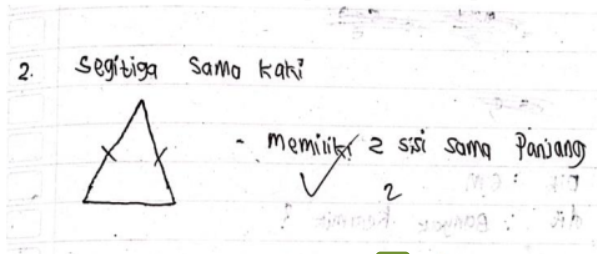 2. Segitiga Sama kaki
- Memiliki 2 sisi sama Panjang
2